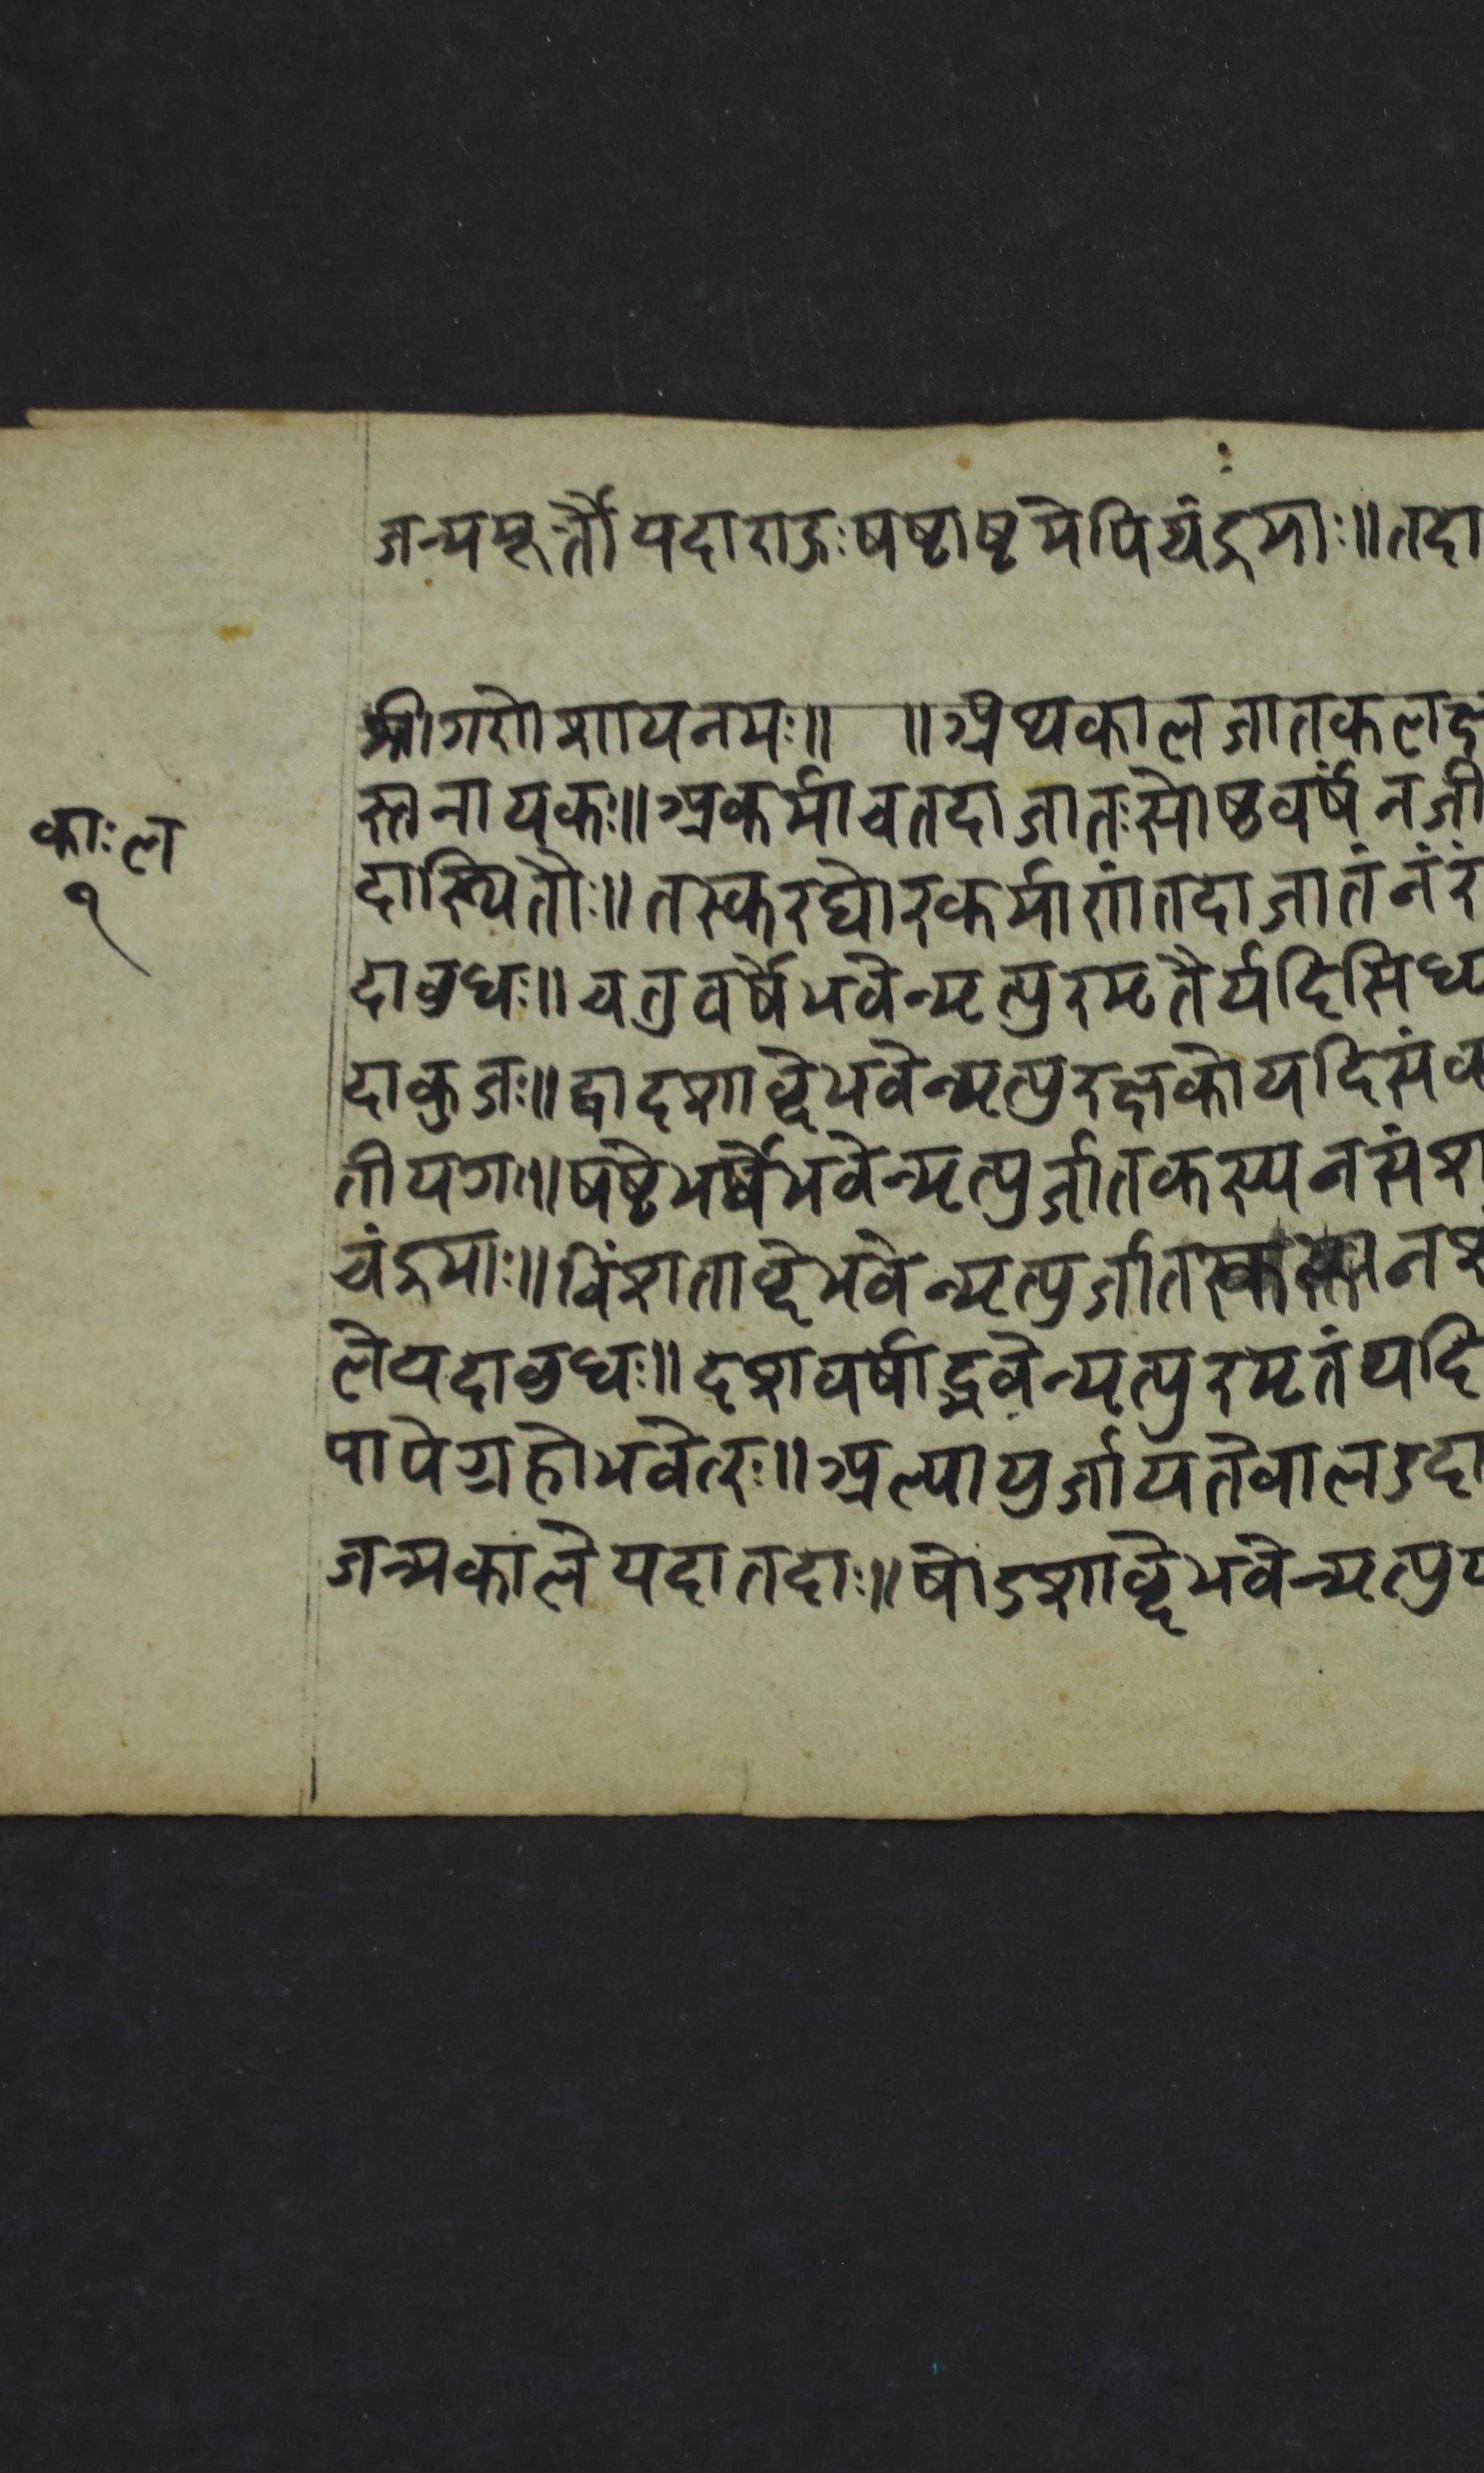 जन्ममूर्तौयदाराहुःषष्टाष्टमेपिचंद्रमाः॥तदा
श्रीगणेशायनमः॥ ॥अथकालजातकलक्ष
स्तनायकः॥अकर्माचतदाजातःसोष्टवर्षंनजी
दास्थितौः॥तस्करघोरकर्माणांतदाजातंनंरं
काःल
१
दाबुधः॥चतुवर्षैभवेन्मृत्युरमृतैर्यदिसिध्य
दाकुजः॥द्वादशाब्देभवेन्मृत्युरक्षकोयदिसंक
तीयगः॥षष्टेभर्षैभवेन्मृत्युर्जातकस्यनसंश
चंद्रमाः॥विंशताब्देभवेन्मृत्युर्जात नश
लेयदाबुधः॥दशवर्षाद्भवेन्मृत्युरमृतंयदि
पापेग्रहोभवेत्तरः॥अल्पायुर्जायतेबालऽदा
जन्मकालेयदातदाः॥षोडशाब्देभवेन्मृत्युय